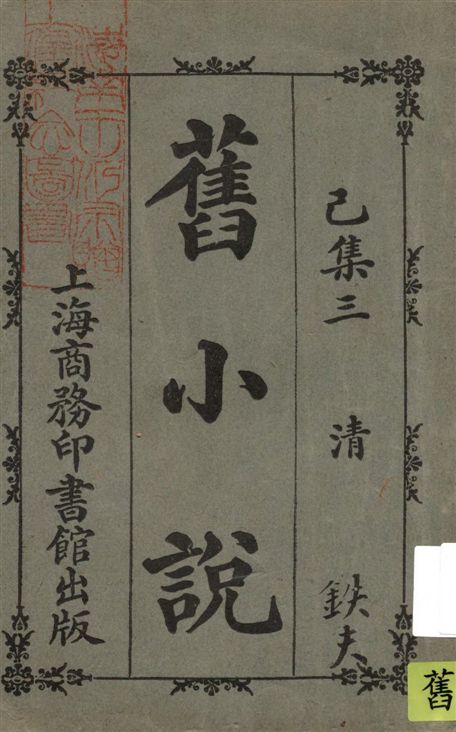 己集三 清 鉄夫
舊小說
上海商務印書館出版
舊